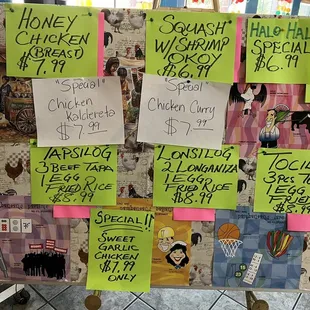 HONEY
CHICKEN
(BREAST)
$7.99
SQUASH
W/SHRIMP
OKOY
$6.99
HALO HAL
SPECIAL
$6.99
"Special"
Chicken
Kaldereta
$7.99
"Special"
Chicken Curry
$7.99
TAPSILOG
3 BEEF TAPA
1 EGG
FRIED RICE
$8.99
LONSILOG
2 LONGANIZA
1 EGG
FRIED RICE
$8.99
TOCIL
3 PCS T
1 EGG
FRIED R
$8.9
SPECIAL!!
SWEET
GARLIC
CHICKEN
$7.99
ONLY